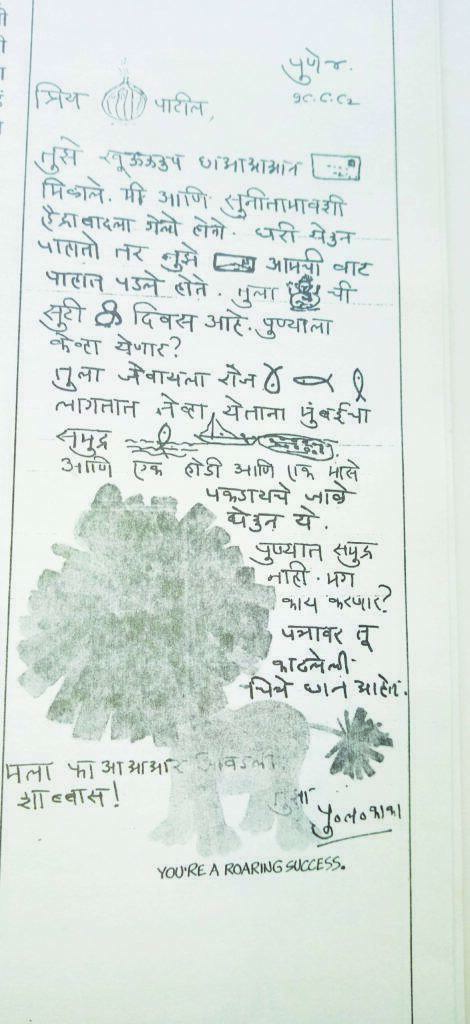 पुणे ४.
१८.८.८२
प्रिय पाटील,
तुझे खूऊऊऊप छाआआआन
मिळाले. मी आणि सुनीतामावशी
हैद्राबादला गेलो होतो. घरी येऊन
पाहातो तर तुझे आमची वाट
पाहात पडले होते. तुला ची
सुटी 8 दिवस आहे. पुण्याला
केव्हा येणार?
तुला जेवायला रोज
लागतात तेव्हा येताना मुंबईचा
समुद्र
आणि एक होडी आणि एक मासे
पकडायचे जाळे
घेऊन ये.
पुण्यात समुद्र
नाही. मग
काय करणार?
पत्रावर तू
काढलेली
चित्रे छान आहेत.
मला फाआआआर आवडली.
शाब्बास!
तुझा
पु०ल०काका
YOU'RE A ROARING SUCCESS.